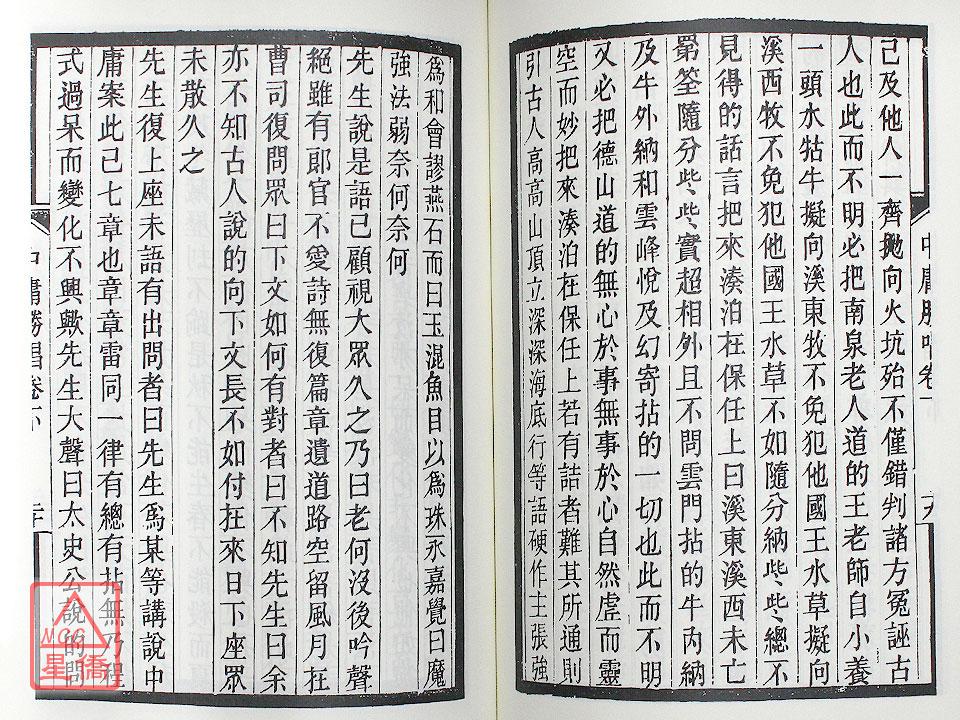 己及他人一齊拋向火坑殆不僅錯判諸方冤誣古
人也此而不明必把南泉老人道的王老師自小養
一頭水牯牛擬向溪東牧不免犯他國王水草擬向
溪西牧不免犯他國王水草不如隨分納些些總不
見得的話言把來湊泊在保任上曰溪東溪西未亡
罤筌隨分些些實超相外且不問雲門拈的牛內納
及牛外納和雲峰悅及幻寄拈的一切也此而不明
又必把德山道的無心於事無事於心自然虛而靈
空而妙把來湊泊在保任上若有詰者難其所通則
引古人高高山頂立深深海底行等語硬作主張強
中庸勝唱卷下
為和會謬燕石而曰玉混魚目以為珠永嘉覺曰魔
強法弱奈何奈何
先生說是語已顧視大眾久之乃曰老何沒後吟聲
絕雖有郎官不愛詩無復篇章遺道路空留風月在
曹司復問眾曰下文如何有對者曰不知先生曰余
亦不知古人說的向下文長不如付在來日下座眾
未散久之
先生復上座未語有出問者曰先生為某等講說中
庸案此已七章也章章雷同一律有總有拈無乃程
式過呆而變化不興歟先生大聲曰太史公說的問
中庸勝唱卷下
星僑
NCC